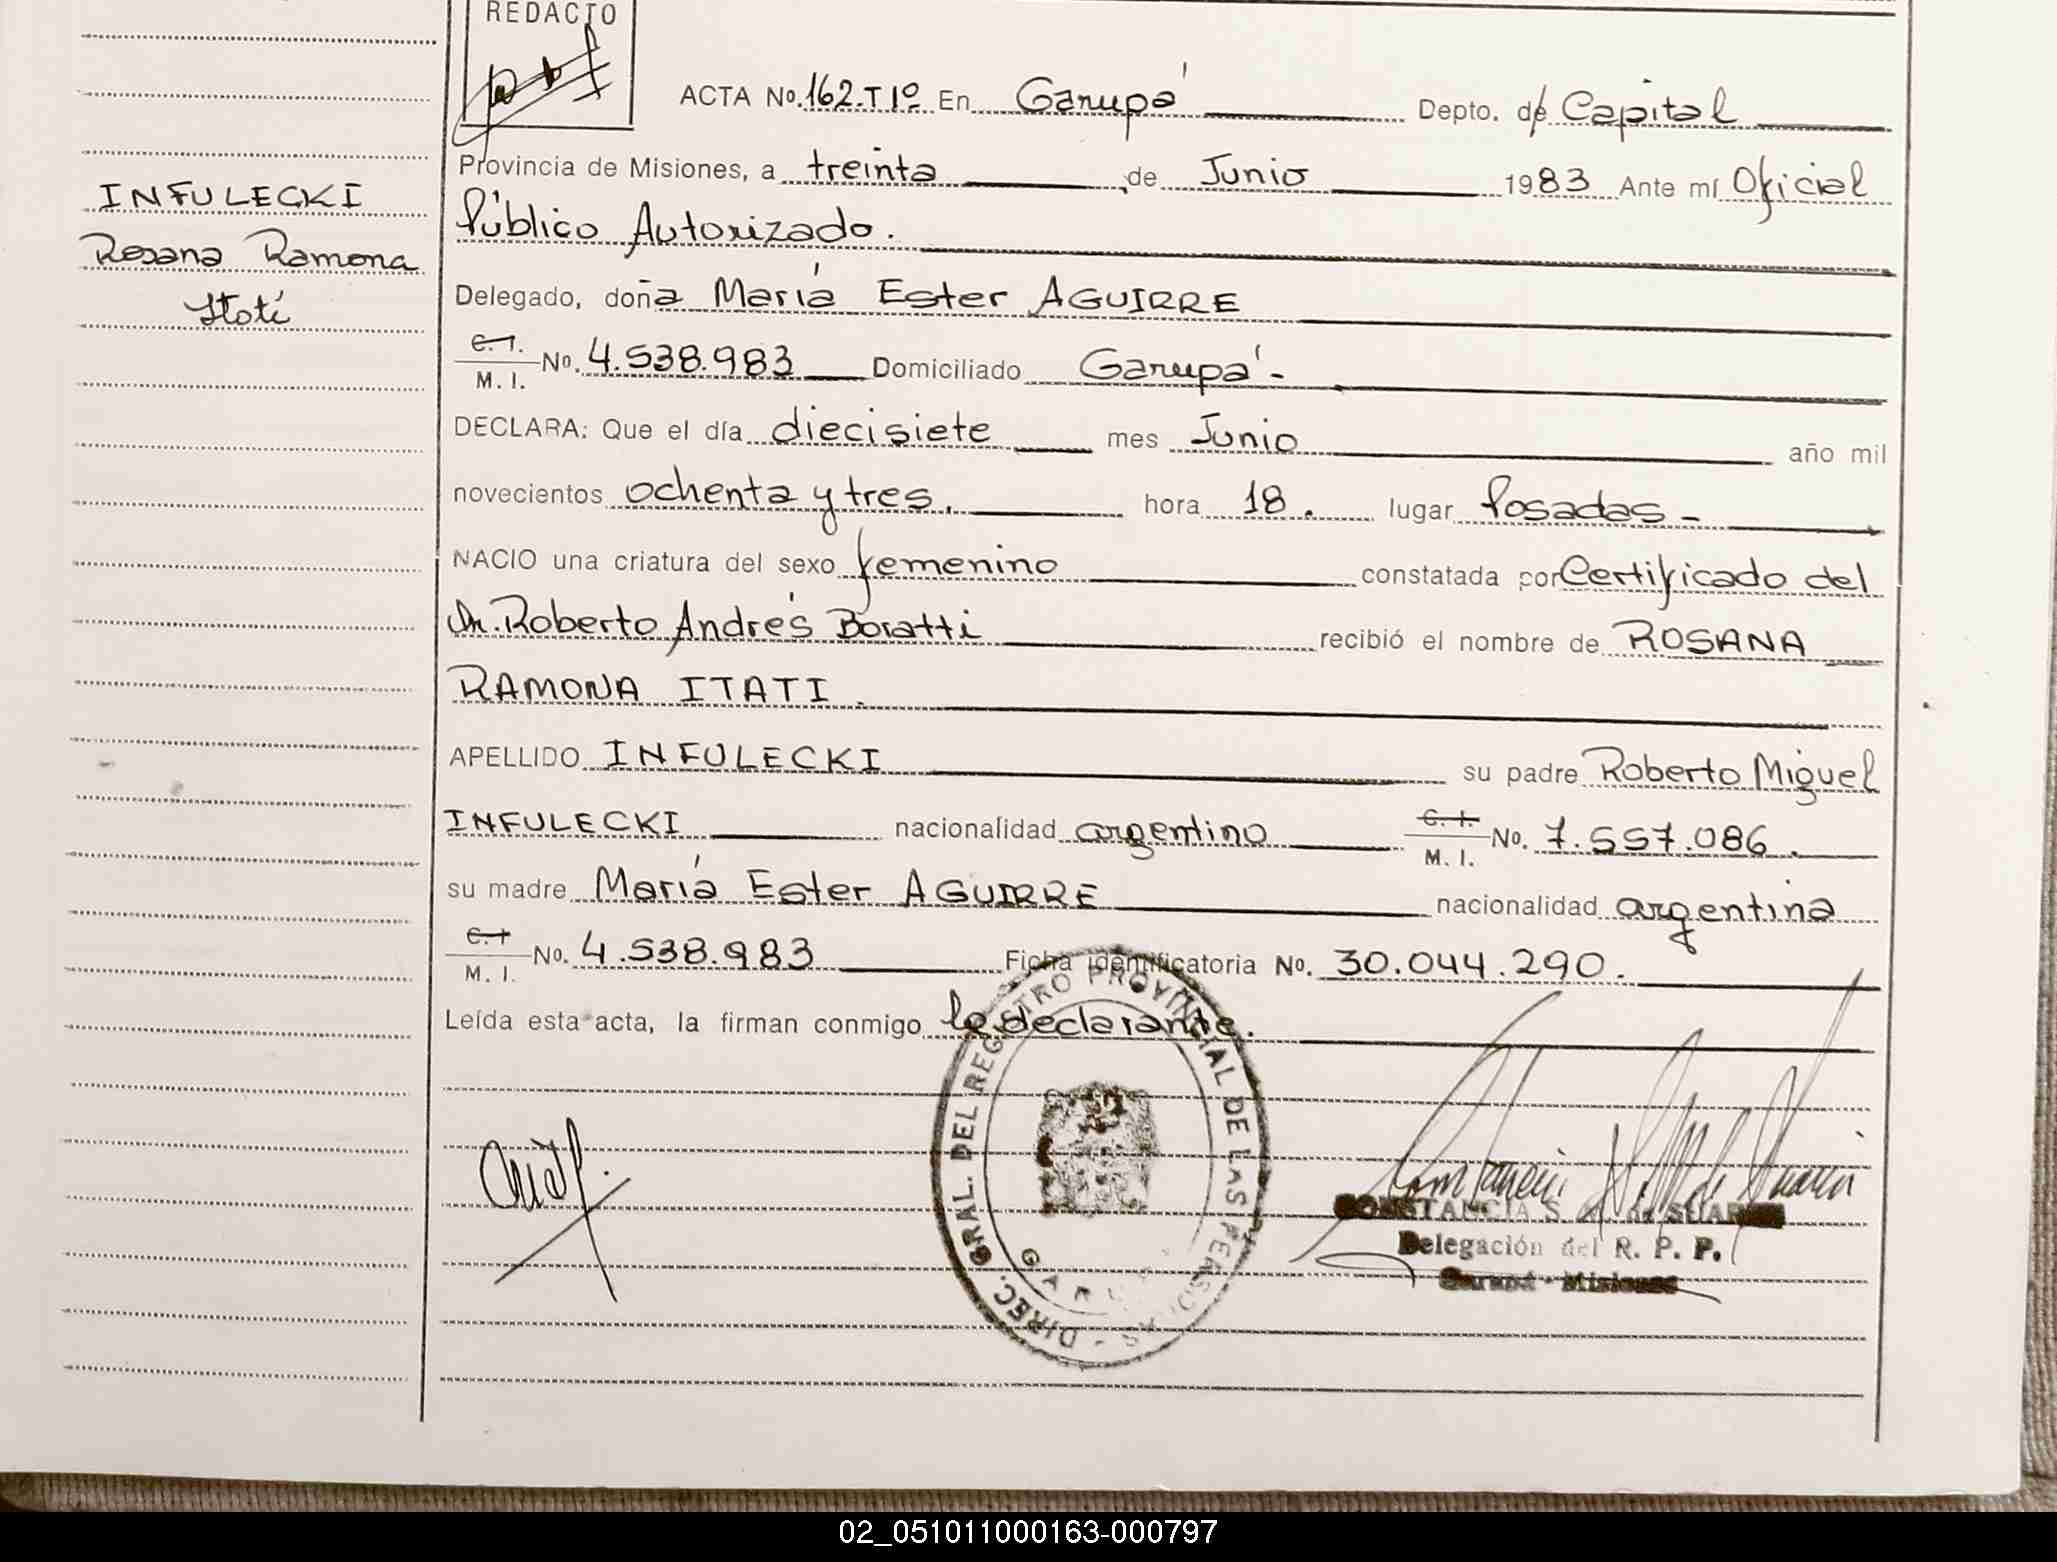 REDACTO
ACTA No. 162.T1º En Garupá Depto. de Capital
Provincia de Misiones, a treinta de Junio 1983 Ante mí Oficial
Público Autorizado.
INFULECKI
Rosana Ramona
Itatí
Delegado, doña María Ester AGUIRRE
C. I.
M. I. No. 4.538.983 Domiciliado Garupá -
DECLARA: Que el día diecisiete mes Junio año mil
novecientos ochenta y tres. hora 18. lugar Posadas -
NACIO una criatura del sexo femenino constatada por Certificado del
Dr. Roberto Andrés Boratti recibió el nombre de ROSANA
RAMONA ITATI.
APELLIDO INFULECKI su padre Roberto Miguel
INFULECKI nacionalidad argentino C. I. M. I. No. 7.557.086.
su madre María Ester AGUIRRE nacionalidad argentina
C. I
M. I. No. 4.538.983 Ficha identificatoria No. 30.044.290.
Leída esta acta, la firman conmigo la declarante.
DIREC. GRAL. DEL REGISTRO PROVINCIAL DE LAS PERSONAS -
CONSTANCIA S. de SUAREZ
Delegación del R. P. P.
Garupá - Misiones
02_051011000163-000797